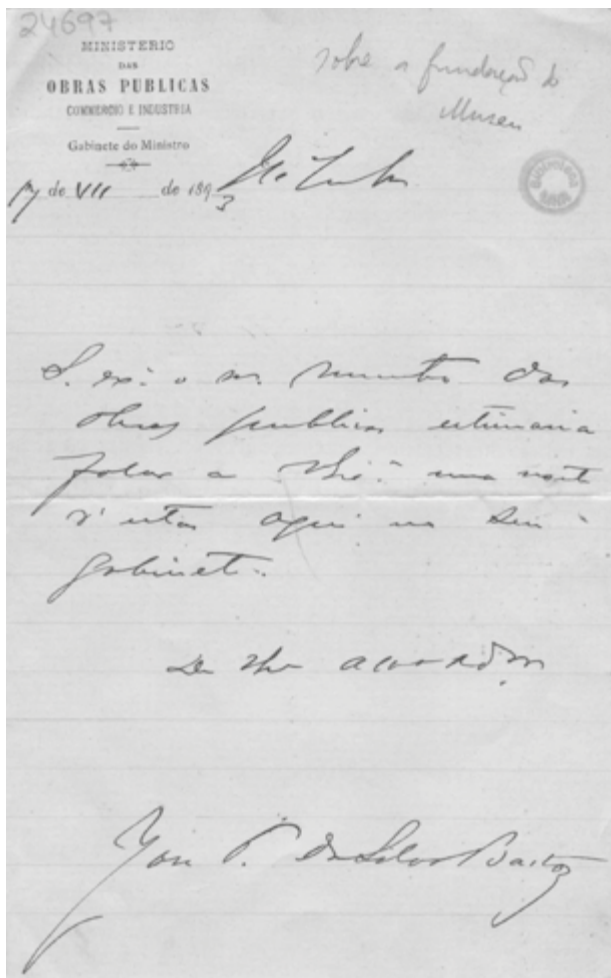 24697
MINISTERIO
DAS
OBRAS PUBLICAS
COMMERCIO E INDUSTRIA
Gabinete do Ministro
sobre a fundação do
Museu
17 de VII de 1893
S. exª o sr. ministro das
obras publicas estimaria
falar a V. Exª uma noite
d'estas aqui no seu
gabinete.
De V. Exª
José P. da Silva Bastos